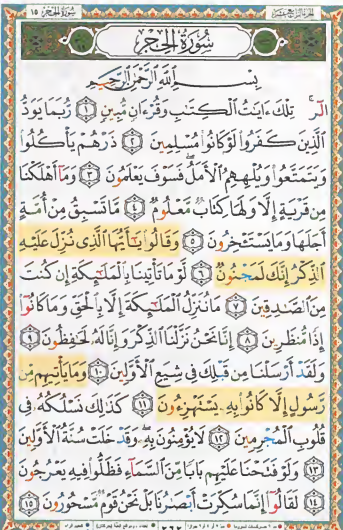 سُورَةُ الحِجْرِ ١٥
سُورَةُ الحِجْرِ
بِسْمِ اللَّهِ الرَّحْمَٰنِ الرَّحِيمِ
الٓرۚ تِلْكَ ءَايَٰتُ ٱلْكِتَٰبِ وَقُرْءَانٍ مُّبِينٍ ١ رُّبَمَا يَوَدُّ
ٱلَّذِينَ كَفَرُوا۟ لَوْ كَانُوا۟ مُسْلِمِينَ ٢ ذَرْهُمْ يَأْكُلُوا۟
وَيَتَمَتَّعُوا۟ وَيُلْهِهِمُ ٱلْأَمَلُۖ فَسَوْفَ يَعْلَمُونَ ٣ وَمَآ أَهْلَكْنَا
مِن قَرْيَةٍ إِلَّا وَلَهَا كِتَابٌ مَّعْلُومٌ ٤ مَّا تَسْبِقُ مِنْ أُمَّةٍ
أَجَلَهَا وَمَا يَسْتَـْٔخِرُونَ ٥ وَقَالُوا۟ يَٰٓأَيُّهَا ٱلَّذِى نُزِّلَ عَلَيْهِ
ٱلذِّكْرُ إِنَّكَ لَمَجْنُونٌ ٦ لَّوْ مَا تَأْتِينَا بِٱلْمَلَٰٓئِكَةِ إِن كُنتَ
مِنَ ٱلصَّٰدِقِينَ ٧ مَا نُنَزِّلُ ٱلْمَلَٰٓئِكَةَ إِلَّا بِٱلْحَقِّ وَمَا كَانُوٓا۟
إِذًا مُّنظَرِينَ ٨ إِنَّا نَحْنُ نَزَّلْنَا ٱلذِّكْرَ وَإِنَّا لَهُۥ لَحَٰفِظُونَ ٩
وَلَقَدْ أَرْسَلْنَا مِن قَبْلِكَ فِى شِيَعِ ٱلْأَوَّلِينَ ١٠ وَمَا يَأْتِيهِم مِّن
رَّسُولٍ إِلَّا كَانُوا۟ بِهِۦ يَسْتَهْزِءُونَ ١١ كَذَٰلِكَ نَسْلُكُهُۥ فِى
قُلُوبِ ٱلْمُجْرِمِينَ ١٢ لَا يُؤْمِنُونَ بِهِۦۖ وَقَدْ خَلَتْ سُنَّةُ ٱلْأَوَّلِينَ
١٣ وَلَوْ فَتَحْنَا عَلَيْهِم بَابًا مِّنَ ٱلسَّمَآءِ فَظَلُّوا۟ فِيهِ يَعْرُجُونَ
١٤ لَقَالُوٓا۟ إِنَّمَا سُكِّرَتْ أَبْصَٰرُنَا بَلْ نَحْنُ قَوْمٌ مَّسْحُورُونَ ١٥
٢٦٢